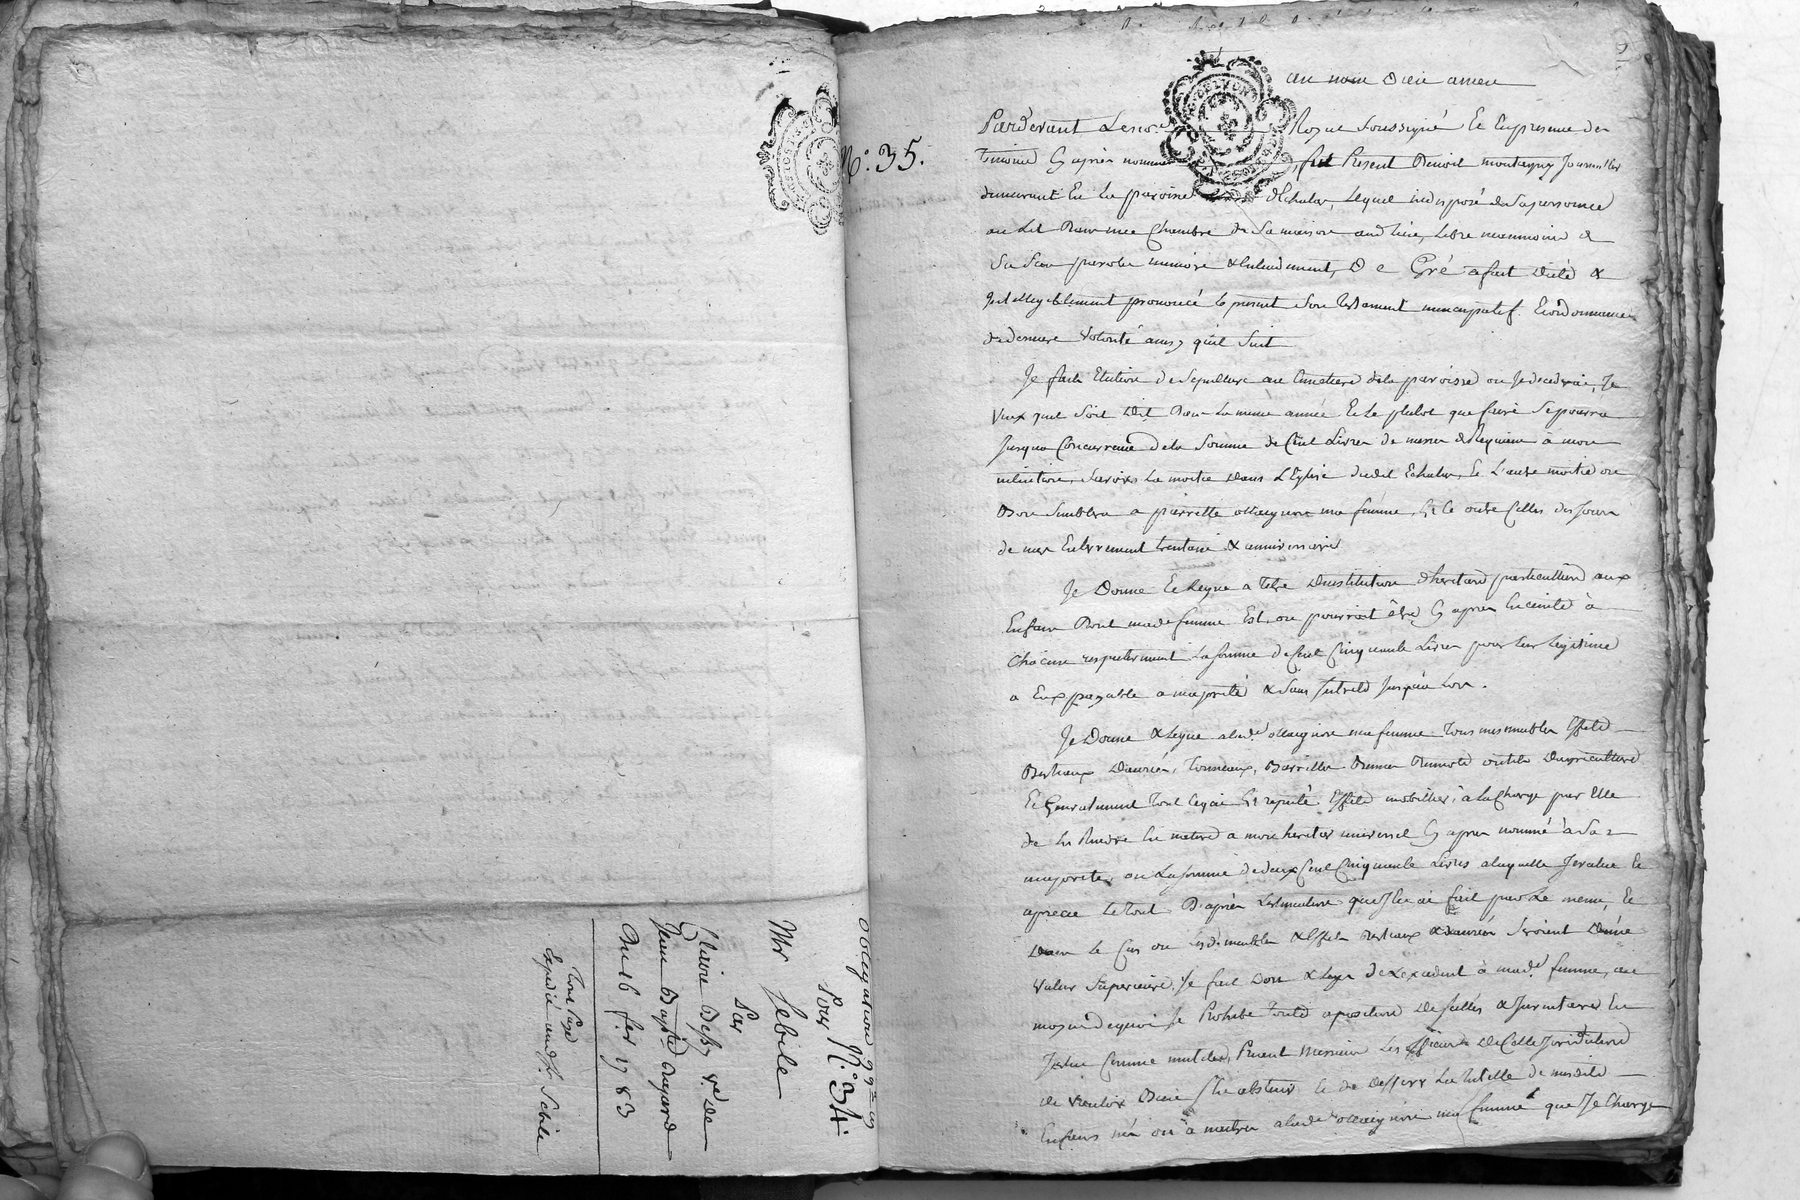 Obligation
pour N.° 34.
Mr Sebile
Par
Claire Bessy ve de
Jean Baptte
Du 16 fer 1783
Expedié aud Sr Sebile
N.° 35.
au nom Dieu amen
Pardevant Le no.re Royal Soussigné Et En presence des
Temoins Cy après nommés, fut Present Benoit montagny Journallier
demeurant En La paroisse d'Echalas, Lequel indisposé de Sa personne
au Lit Dans une Chambre de Sa maison aud lieu, Libre neanmoins de
Ses Sens parole memoire & Entendement, De Gré a fait dicté &
Intelligiblement prononcé le present Son testament nuncupatif Et ordonnance
de derniere Volonté ainsy qu'il Suit
Je fais Election de Sepulture au Cimetiere de la paroisse ou Je decederai, Je
Veux quil Soit Dit Dans La meme année Et Le plutot que faire Se pourra
Jusqua Concurrance de la Somme de Cent Livres de messes de Requiem à mon
intention, Savoir La moitié Dans L'Eglise dudit Echalas, Et L'autre moitié ou
Bon Semblera a pierrette ma femme, Et Ce outre Celles des Jours
de mes Enterrement trentaine & anniversaire
Je Donne Et Legue a titre D'institution d'heritiers particulliers aux
Enfans Dont mad.e femme Est, ou pourroit être Cy après Enceinte à
Chacun respectivement La Somme de Cent Cinquante Livres pour leur Legitime
a Eux payable a majorité & Sans Interets Jusqu'a Lors.
Je Donne & Legue a lad.e ma femme Tous mes meubles Effets
Bestiaux Danrées, Tonneaux, Barrilles Bennes Bennots outils D'agriculture
Et Generalement Tout Ce qui Est reputé Effets mobilliers, à La Charge par Elle
de Les Rendre En nature a mon heritier universel Cy après nommé à Sa
majorité, ou La Somme de deux Cent Cinquante Livres a laquelle J'evalue Et
aprecie Le Tout D'après L'estimation que J'en ai fait moi Le meme, Et
Dans Le Cas ou Lesd. meubles & Effets Bestiaux & danrées Seroient D'une
Valeur Superieure, Je fais Don & Legs de L'excedent à mad.e femme, au
moyen de quoi Je Prohibe Toute aposition de Scellés & Inventaire Et
Jestue Comme inutiles, Priant Messieurs Les officiers De Cette Juridiction
de Vouloir Bien S'en abstenir Et de Deferer La tutelle de mesdits
Enfans nés ou à naitre a lad.e ma femme que Je Charge